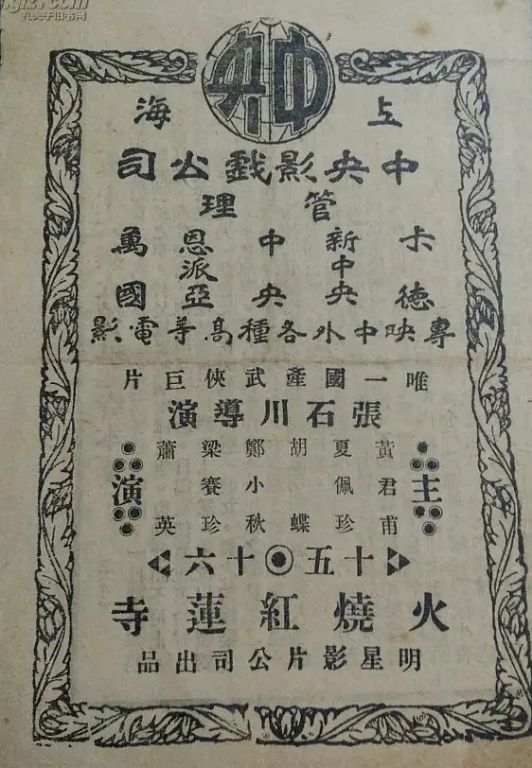 孔夫子旧书网
中央
上海
中央影戲公司
管理
卡德 新中央 中央 恩派亞 萬國
專映中外各種高等電影
唯一國產武俠巨片
張石川導演
主演
黃君甫 夏佩珍 胡蝶 鄭小秋 梁賽珍 蕭英
十五 十六
火燒紅蓮寺
明星影片公司出品